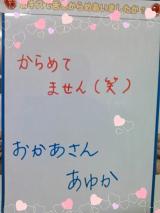 からめて
ません（笑）
おかあさん
あゆか